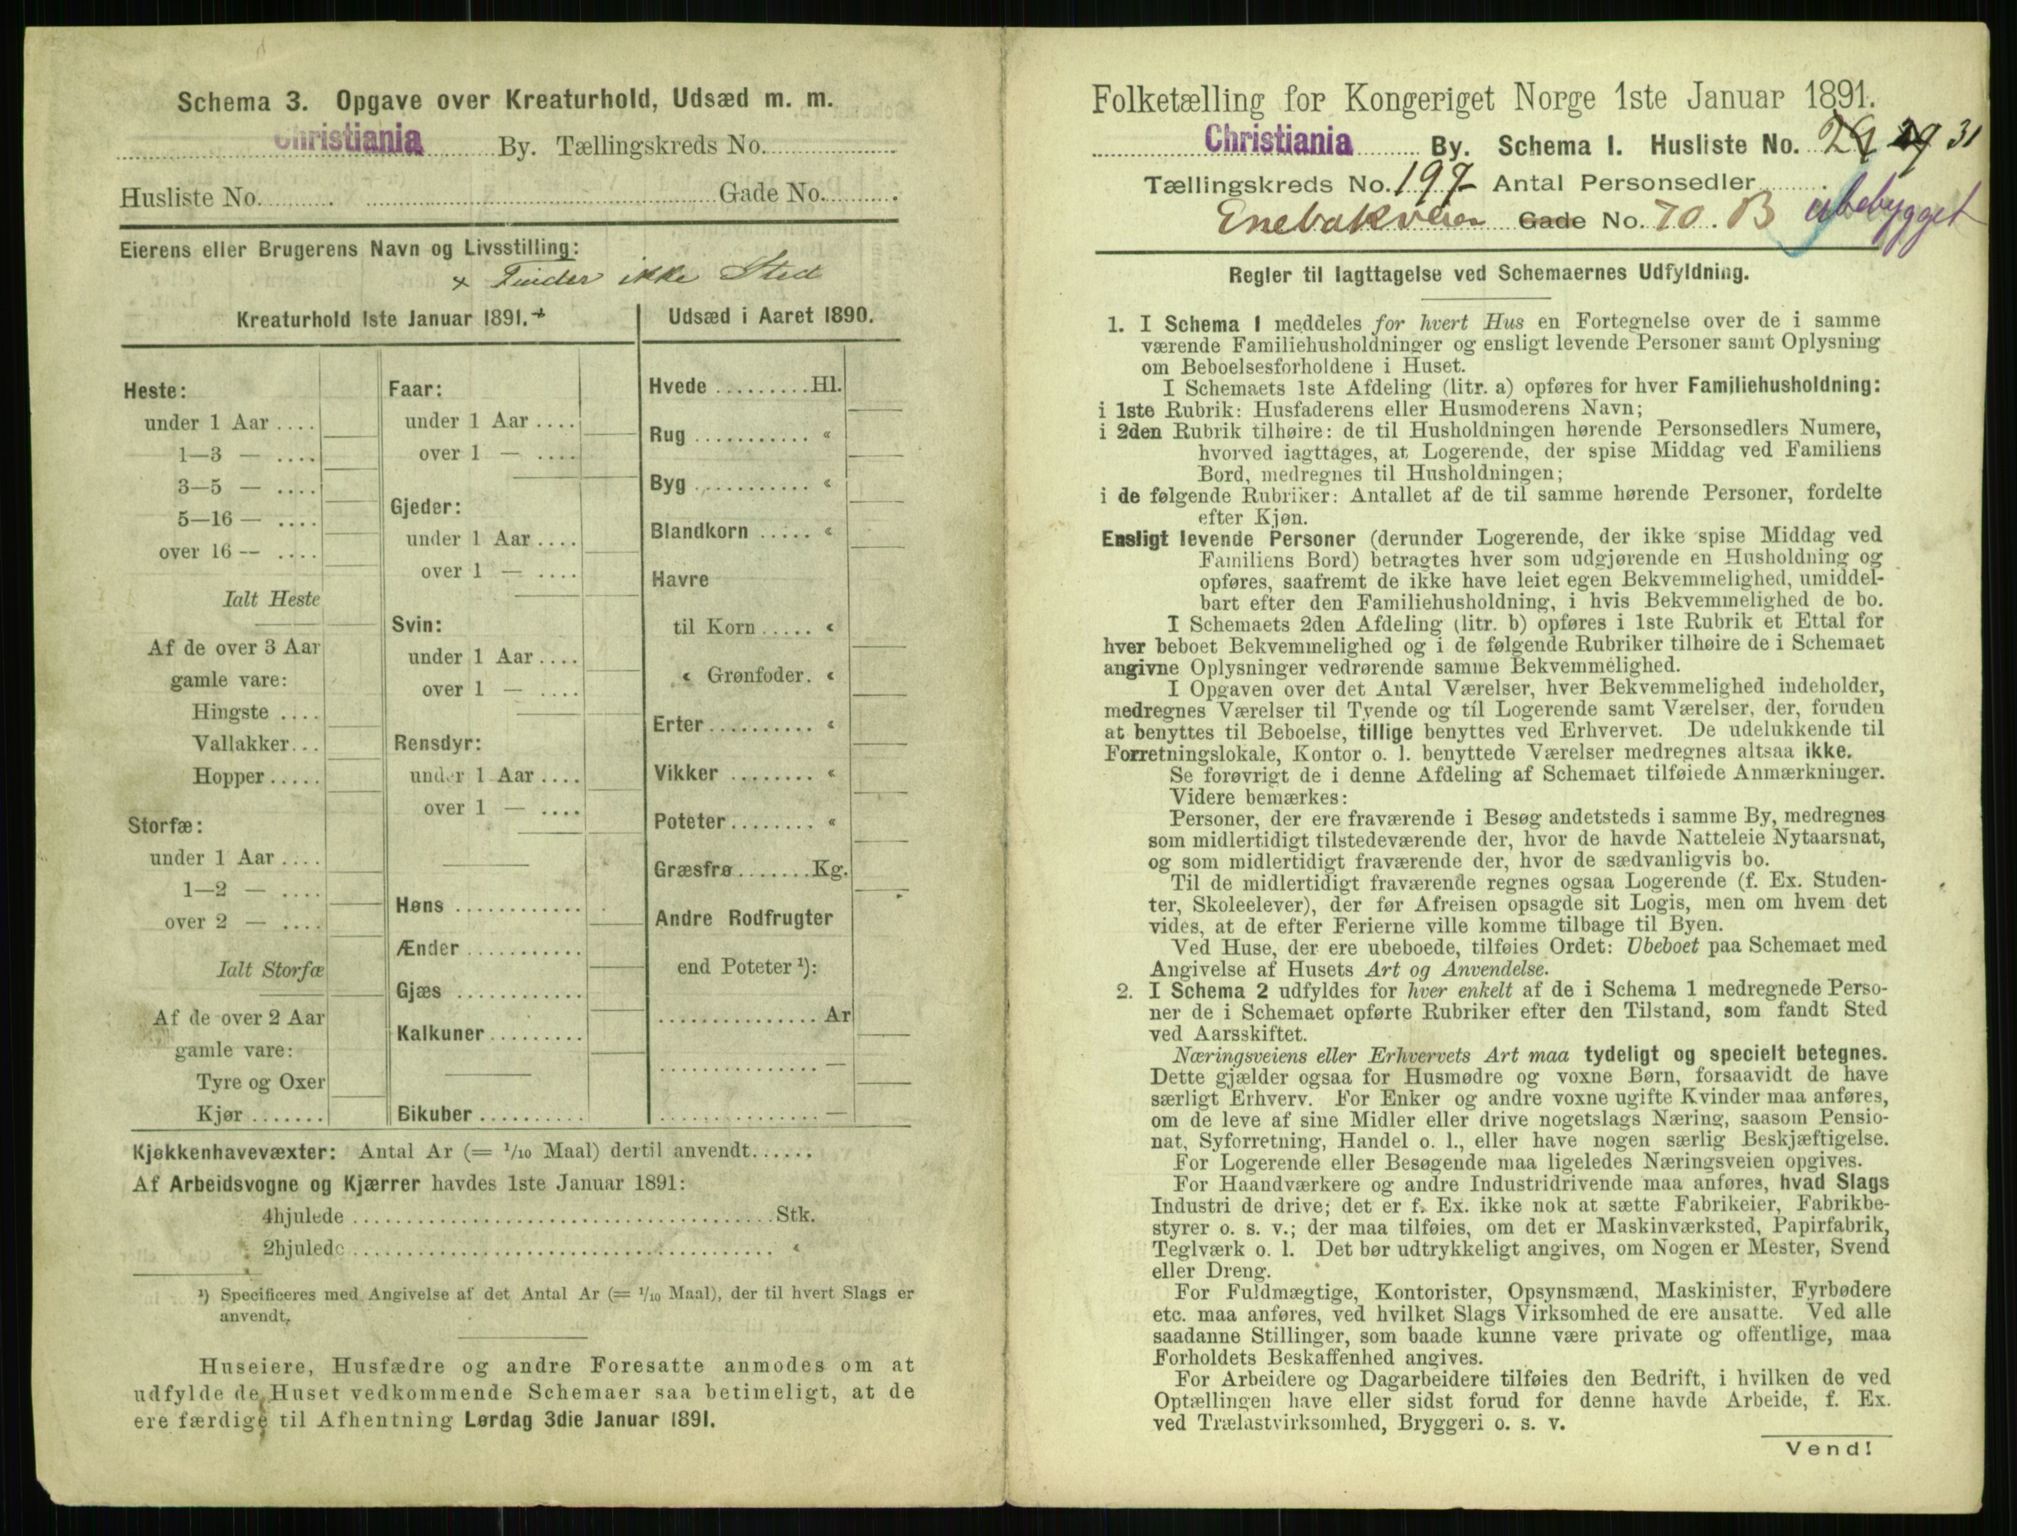 Schema 3. Opgave over Kreaturhold, Udsæd m. m.
Christiania By. Tællingskreds No.
Husliste No. Gade No.
Eierens eller Brugerens Navn og Livsstilling:
+ Finder ikke Sted
Kreaturhold 1ste Januar 1891.+
Heste:
under 1 Aar ....
1—3 — ....
3—5 — ....
5—16 — ....
over 16 — ....
Ialt Heste
Af de over 3 Aar
gamle vare:
Hingste ....
Vallakker...
Hopper.....
Storfæ:
under 1 Aar ....
1—2 — ....
over 2 — ....
Ialt Storfæ
Af de over 2 Aar
gamle vare:
Tyre og Oxer
Kjør.......
Faar:
under 1 Aar ....
over 1 — ....
Gjeder:
under 1 Aar ....
over 1 — ....
Svin:
under 1 Aar ....
over 1 — ....
Rensdyr:
under 1 Aar ....
over 1 — ....
Høns ............
Ænder ...........
Gjæs ............
Kalkuner.........
Bikuber..........
Udsæd i Aaret 1890.
Hvede .........Hl.
Rug ........... «
Byg ........... «
Blandkorn ..... «
Havre
til Korn..... «
« Grønfoder. «
Erter.......... «
Vikker ........ «
Poteter........ «
Græsfrø.......Kg.
Andre Rodfrugter
end Poteter ¹):
...............Ar
............... —
............... —
Kjøkkenhavevæxter: Antal Ar (= 1/10 Maal) dertil anvendt......
Af Arbeidsvogne og Kjærrer havdes 1ste Januar 1891:
4hjulede ......................................Stk.
2hjulede...................................... «
¹) Specificeres med Angivelse af det Antal Ar (= 1/10 Maal), der til hvert Slags er
anvendt.
Huseiere, Husfædre og andre Foresatte anmodes om at
udfylde de Huset vedkommende Schemaer saa betimeligt, at de
ere færdige til Afhentning Lørdag 3die Januar 1891.
Folketælling for Kongeriget Norge 1ste Januar 1891.
Christiania By. Schema 1. Husliste No. 29 31
Tællingskreds No. 197 Antal Personsedler
Enebakveien Gade No. 70. B ubebygget
Regler til Iagttagelse ved Schemaernes Udfyldning.
1. I Schema 1 meddeles for hvert Hus en Fortegnelse over de i samme
værende Familiehusholdninger og ensligt levende Personer samt Oplysning
om Beboelsesforholdene i Huset.
I Schemaets 1ste Afdeling (litr. a) opføres for hver Familiehusholdning:
i 1ste Rubrik: Husfaderens eller Husmoderens Navn;
i 2den Rubrik tilhøire: de til Husholdningen hørende Personsedlers Numere,
hvorved iagttages, at Logerende, der spise Middag ved Familiens
Bord, medregnes til Husholdningen;
i de følgende Rubriker: Antallet af de til samme hørende Personer, fordelte
efter Kjøn.
Ensligt levende Personer (derunder Logerende, der ikke spise Middag ved
Familiens Bord) betragtes hver som udgjørende en Husholdning og
opføres, saafremt de ikke have leiet egen Bekvemmelighed, umiddel-
bart efter den Familiehusholdning, i hvis Bekvemmelighed de bo.
I Schemaets 2den Afdeling (litr. b) opføres i 1ste Rubrik et Ettal for
hver beboet Bekvemmelighed og i de følgende Rubriker tilhøire de i Schemaet
angivne Oplysninger vedrørende samme Bekvemmelighed.
I Opgaven over det Antal Værelser, hver Bekvemmelighed indeholder,
medregnes Værelser til Tyende og til Logerende samt Værelser, der, foruden
at benyttes til Beboelse, tillige benyttes ved Erhvervet. De udelukkende til
Forretningslokale, Kontor o. l. benyttede Værelser medregnes altsaa ikke.
Se forøvrigt de i denne Afdeling af Schemaet tilføiede Anmærkninger.
Videre bemærkes:
Personer, der ere fraværende i Besøg andetsteds i samme By, medregnes
som midlertidigt tilstedeværende der, hvor de havde Natteleie Nytaarsnat,
og som midlertidigt fraværende der, hvor de sædvanligvis bo.
Til de midlertidigt fraværende regnes ogsaa Logerende (f. Ex. Studen-
ter, Skoleelever), der før Afreisen opsagde sit Logis, men om hvem det
vides, at de efter Ferierne ville komme tilbage til Byen.
Ved Huse, der ere ubeboede, tilføies Ordet: Ubeboet paa Schemaet med
Angivelse af Husets Art og Anvendelse.
2. I Schema 2 udfyldes for hver enkelt af de i Schema 1 medregnede Perso-
ner de i Schemaet opførte Rubriker efter den Tilstand, som fandt Sted
ved Aarsskiftet.
Næringsveiens eller Erhvervets Art maa tydeligt og specielt betegnes.
Dette gjælder ogsaa for Husmødre og voxne Børn, forsaavidt de have
særligt Erhverv. For Enker og andre voxne ugifte Kvinder maa anføres,
om de leve af sine Midler eller drive nogetslags Næring, saasom Pensio-
nat, Syforretning, Handel o. l., eller have nogen særlig Beskjæftigelse.
For Logerende eller Besøgende maa ligeledes Næringsveien opgives.
For Haandværkere og andre Industridrivende maa anføres, hvad Slags
Industri de drive; det er f. Ex. ikke nok at sætte Fabrikeier, Fabrikbe-
styrer o. s. v.; der maa tilføies, om det er Maskinværksted, Papirfabrik,
Teglværk o. l. Det bør udtrykkeligt angives, om Nogen er Mester, Svend
eller Dreng.
For Fuldmægtige, Kontorister, Opsynsmænd, Maskinister, Fyrbødere
etc. maa anføres, ved hvilket Slags Virksomhed de ere ansatte. Ved alle
saadanne Stillinger, som baade kunne være private og offentlige, maa
Forholdets Beskaffenhed angives.
For Arbeidere og Dagarbeidere tilføies den Bedrift, i hvilken de ved
Optællingen have eller sidst forud for denne havde Arbeide, f. Ex.
ved Trælastvirksomhed, Bryggeri o. s. v.
Vend!